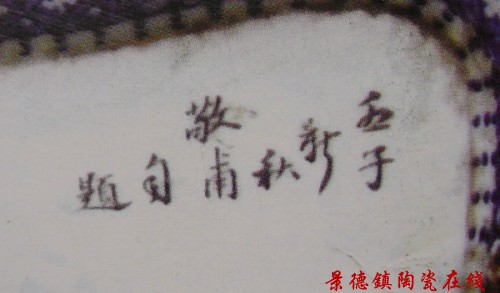 壬子
新秋
敬甫
自題
景德鎮陶瓷在线